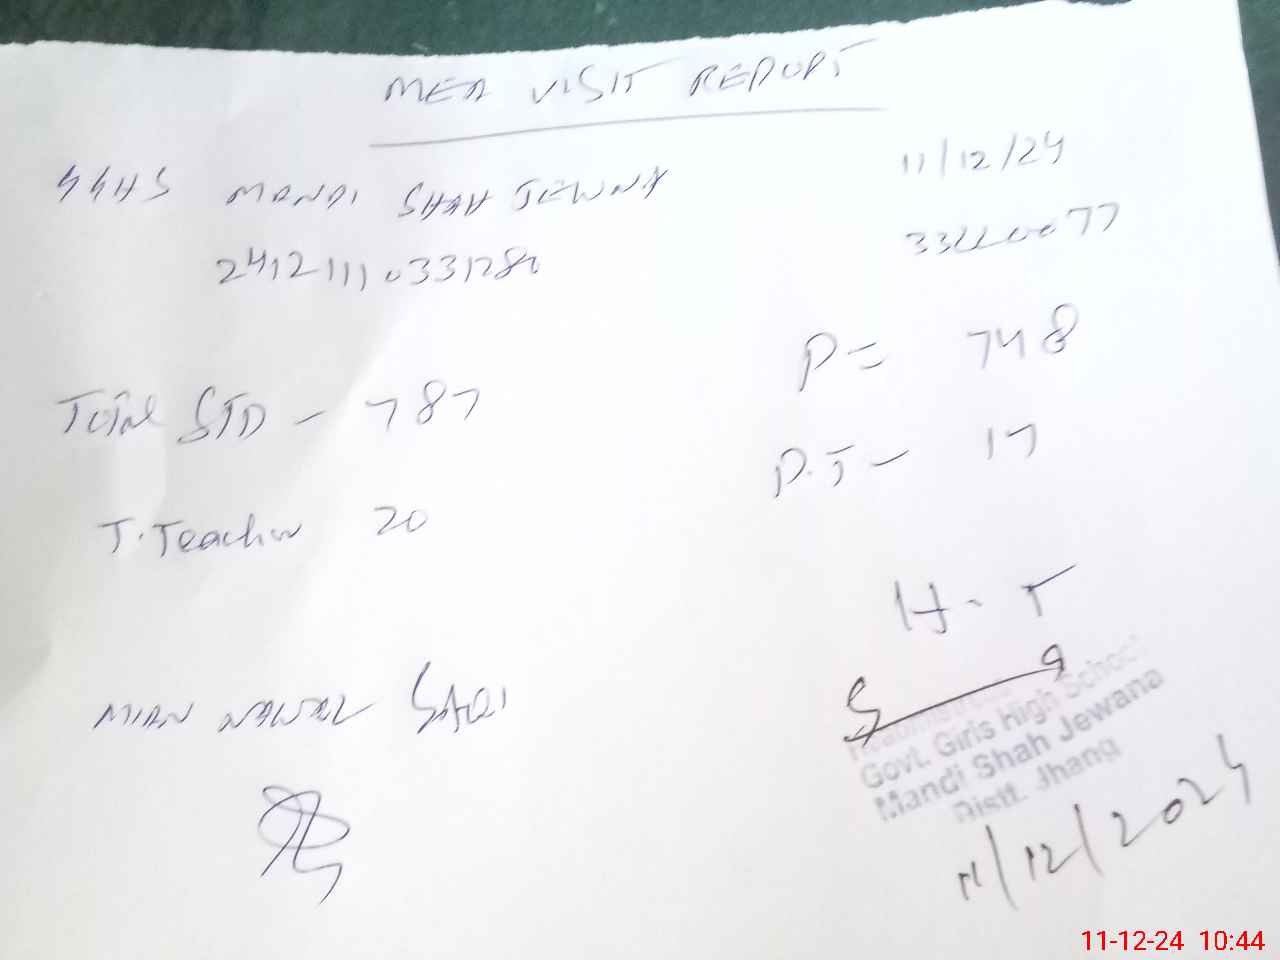 MEA VISIT REPORT
GGHS MANDI SHAH JEWNA 11/12/24
33220077
Total STD - 787 P = 748
T. Teacher 20 P.T - 17
H. T
MIAN NAWAZ
Govt. Girls High School
Mandi Shah Jewana
Distt. Jhang
11/12/2024
11-12-24 10:44